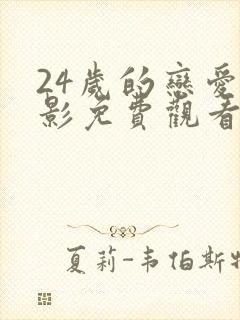 24歲的戀愛
影免費觀看
夏莉-韦伯斯特